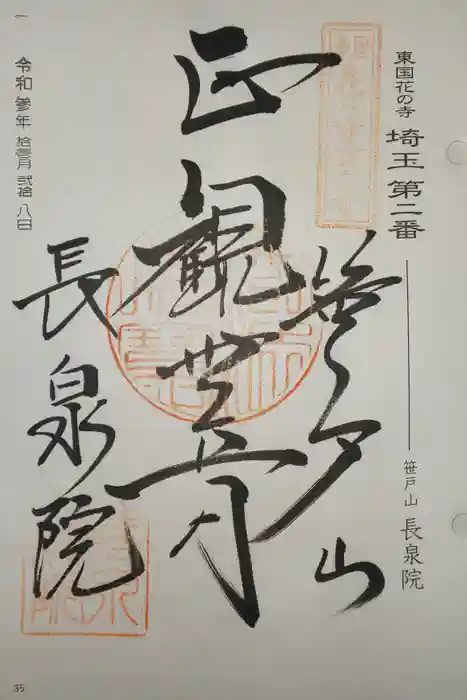 東国花の寺 埼玉第二番
笹戸山 長泉院
笹戸山
正観世音
長泉院
令和参年 拾壱月 弐拾八日
35